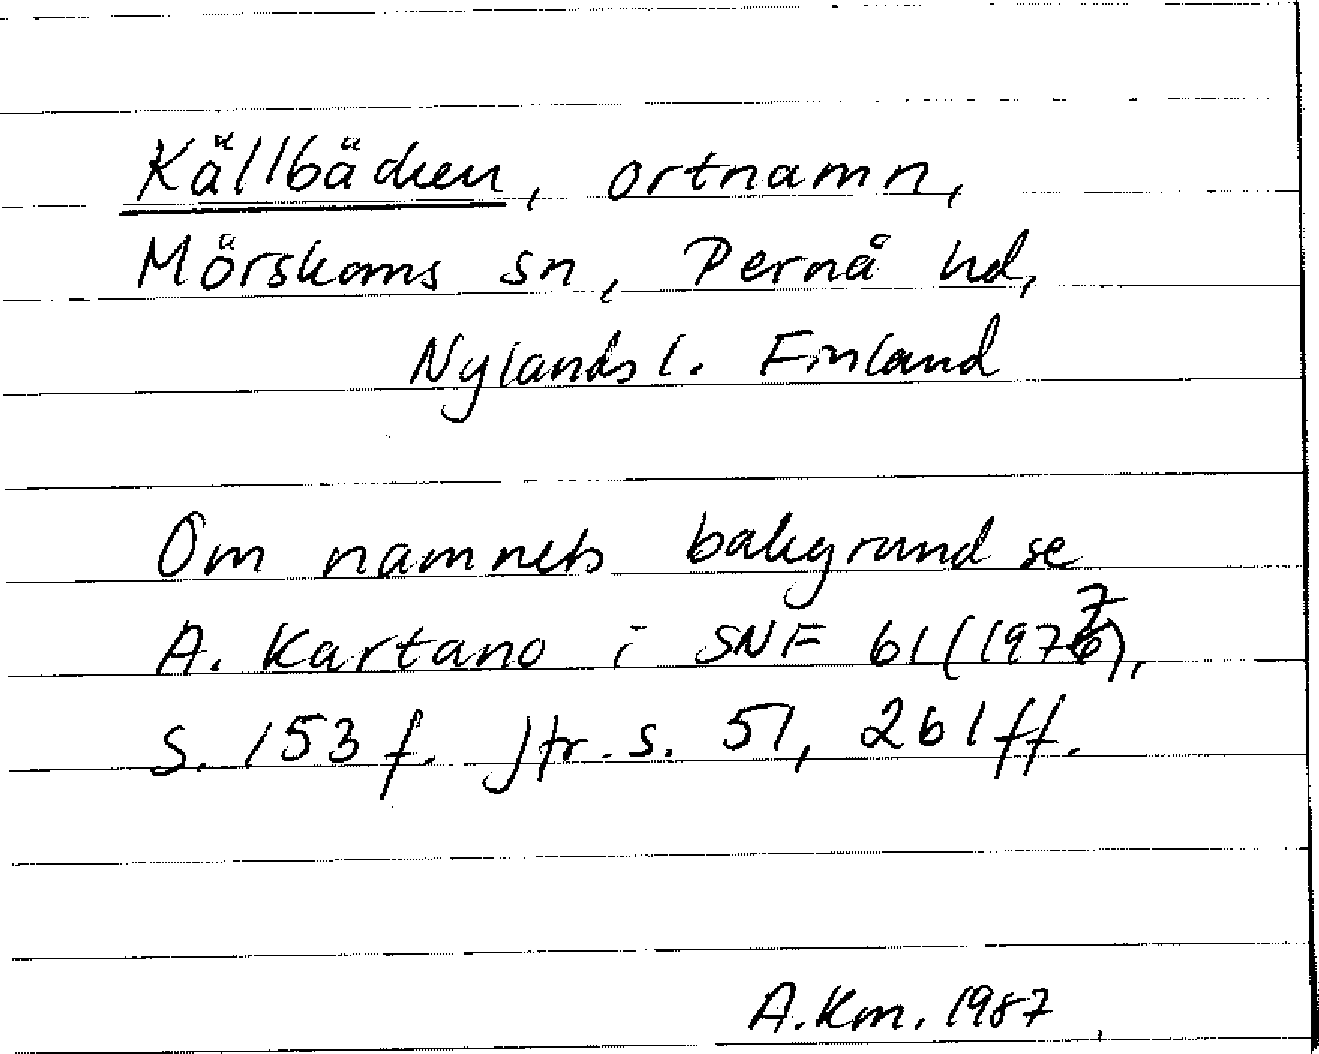 Källbäcken, ortnamn,
Mörskoms sn, Pernå hd,
Nylands l. Finland
Om namnets bakgrund se
A. Kartano i SNF 61 (1977),
s. 153 f. Jfr. s. 51, 261 ff.
A. Km. 1987